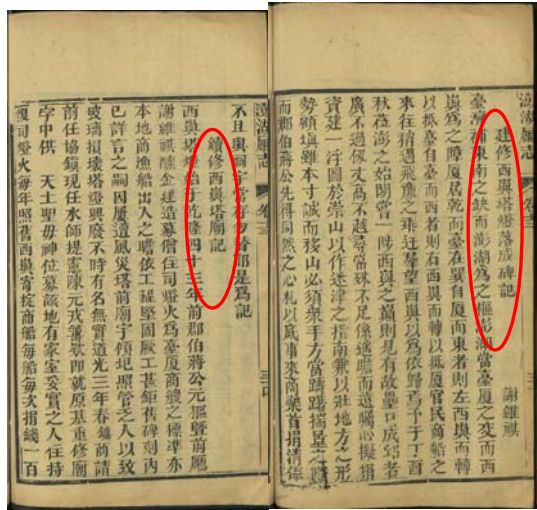 澎湖廳志
建修西嶼塔燈落成碑記　謝維祺
臺灣補東南之缺而澎湖為之樞彭湖當臺厦之交而西
嶼為之障厦居乾而臺在巽自厦而東者則左西嶼而轉
以抵臺自臺而西者則右西嶼而轉以抵厦官民商船之
來往稍遇飛廉之乖迕羣望西嶼以為依歸焉予于丁酉
秋在澎之始閱嘗一陟西嶼之巔則見有故壘成邱者
廣不過丈高不越尋常殊不足係遠瞻而遙矚心擬捐
資建一浮圖於崇山以作迷津之指南兼以壯地方之形
勢顧塡雖本寸誠而移山必須衆手方當躊躇揣量之際
而郡伯蔣公先得同然之心札以底事來商樂首捐清俸
澎湖廳志
不且與祠宇常存勿替耶是為記
續修西嶼塔廟記
西嶼塔燈始于乾隆四十三年前郡伯蔣公元樞暨前廳
謝維祺醵金建造募僧住司燈火為臺厦商艘之標準亦
本地商漁船出入之瞻依工程堅固厥工甚鉅舊碑刻內
已詳言之嗣因屢遭風災塔前廟宇傾圮照管乏人以致
玻璃損壞塔燈興廢不時有名無實道光三年春鎮商請
前任協鎮現任水師提憲陳元戎籌款即就原基重修廟
宇中供　天上聖母神位募誠地有家室妥實之人住持
覆司燈火每年照舊西嶼寄椗商船每船每次捐錢一百